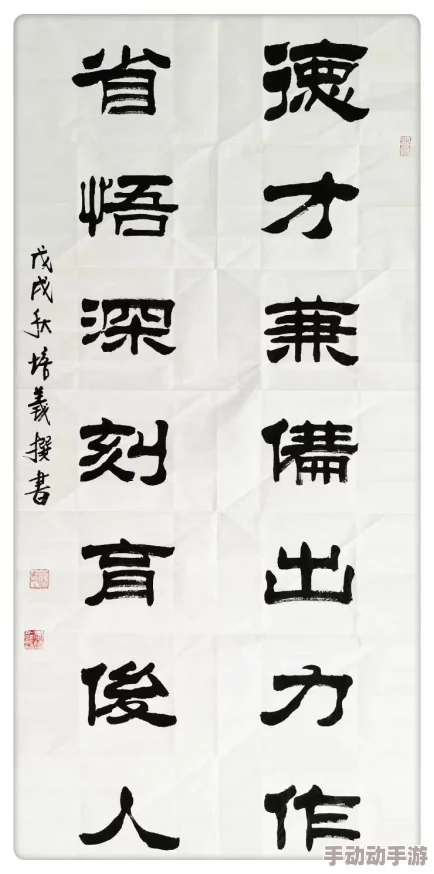 德才兼備出力作
省悟深刻育後人
戊戌秋培義撰書
手动动手游